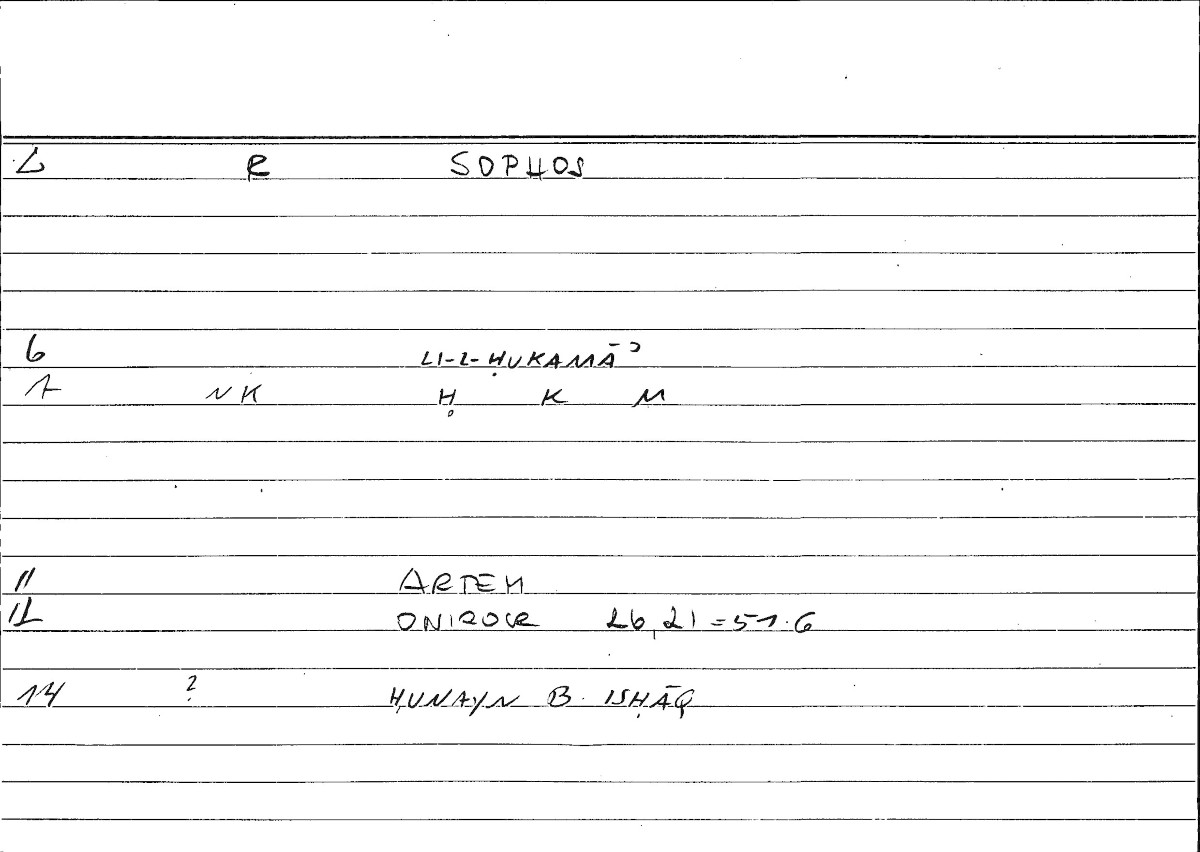 2 e SOPHOS
6 LI-L-ḤUKAMĀʾ
7 NK Ḥ K M
11 ARTEM
12 ONIROCR 26,21=51.6
14 ? ḤUNAYN B. ISḤĀQ